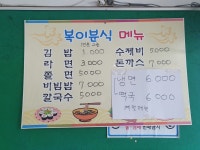 복이분식 메뉴
김밥 1,000
라면 3,000
쫄면 5000
비빔밥 7000
칼국수 5,000
수제비 5000
돈까스 7,000
냉면 6,000
떡국 6,000